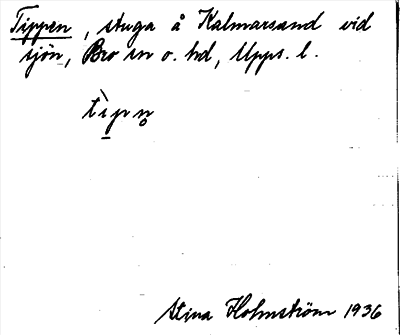 Tippen, stuga å Kalmarsand vid
sjön, Bro sn o. hd, Upps. l.
tìpn̥
Stina Holmström 1936